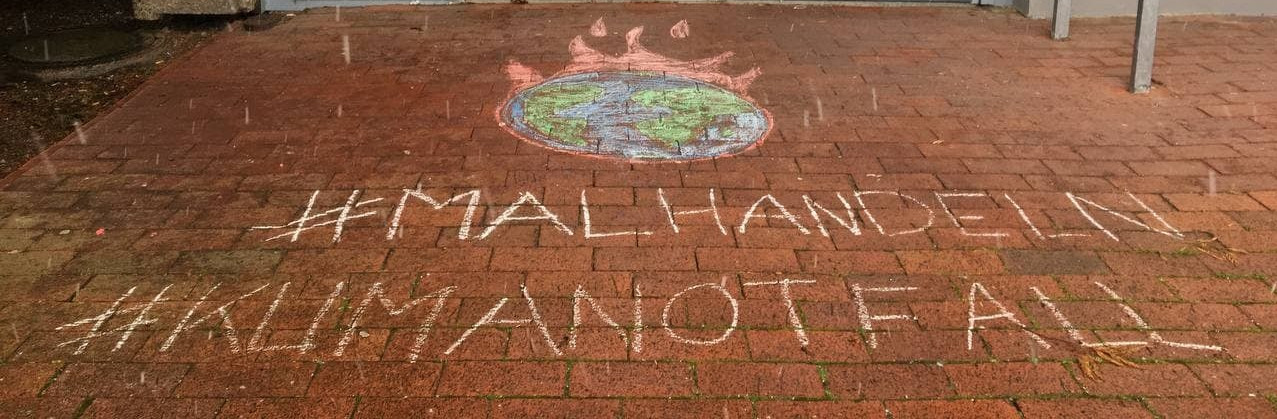 #MALHANDELN
#KLIMANOTFALL